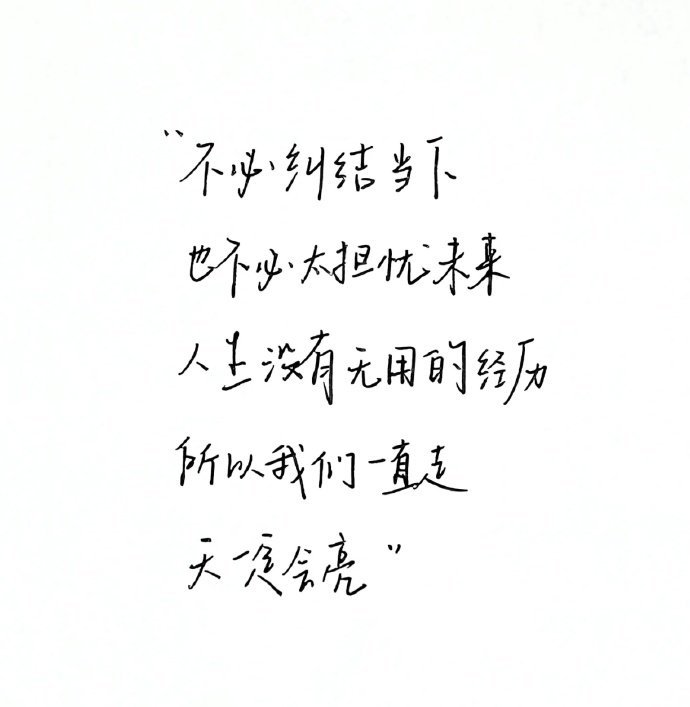 “不必纠结当下
也不必太担忧未来
人生没有无用的经历
所以我们一直走
天一定会亮”